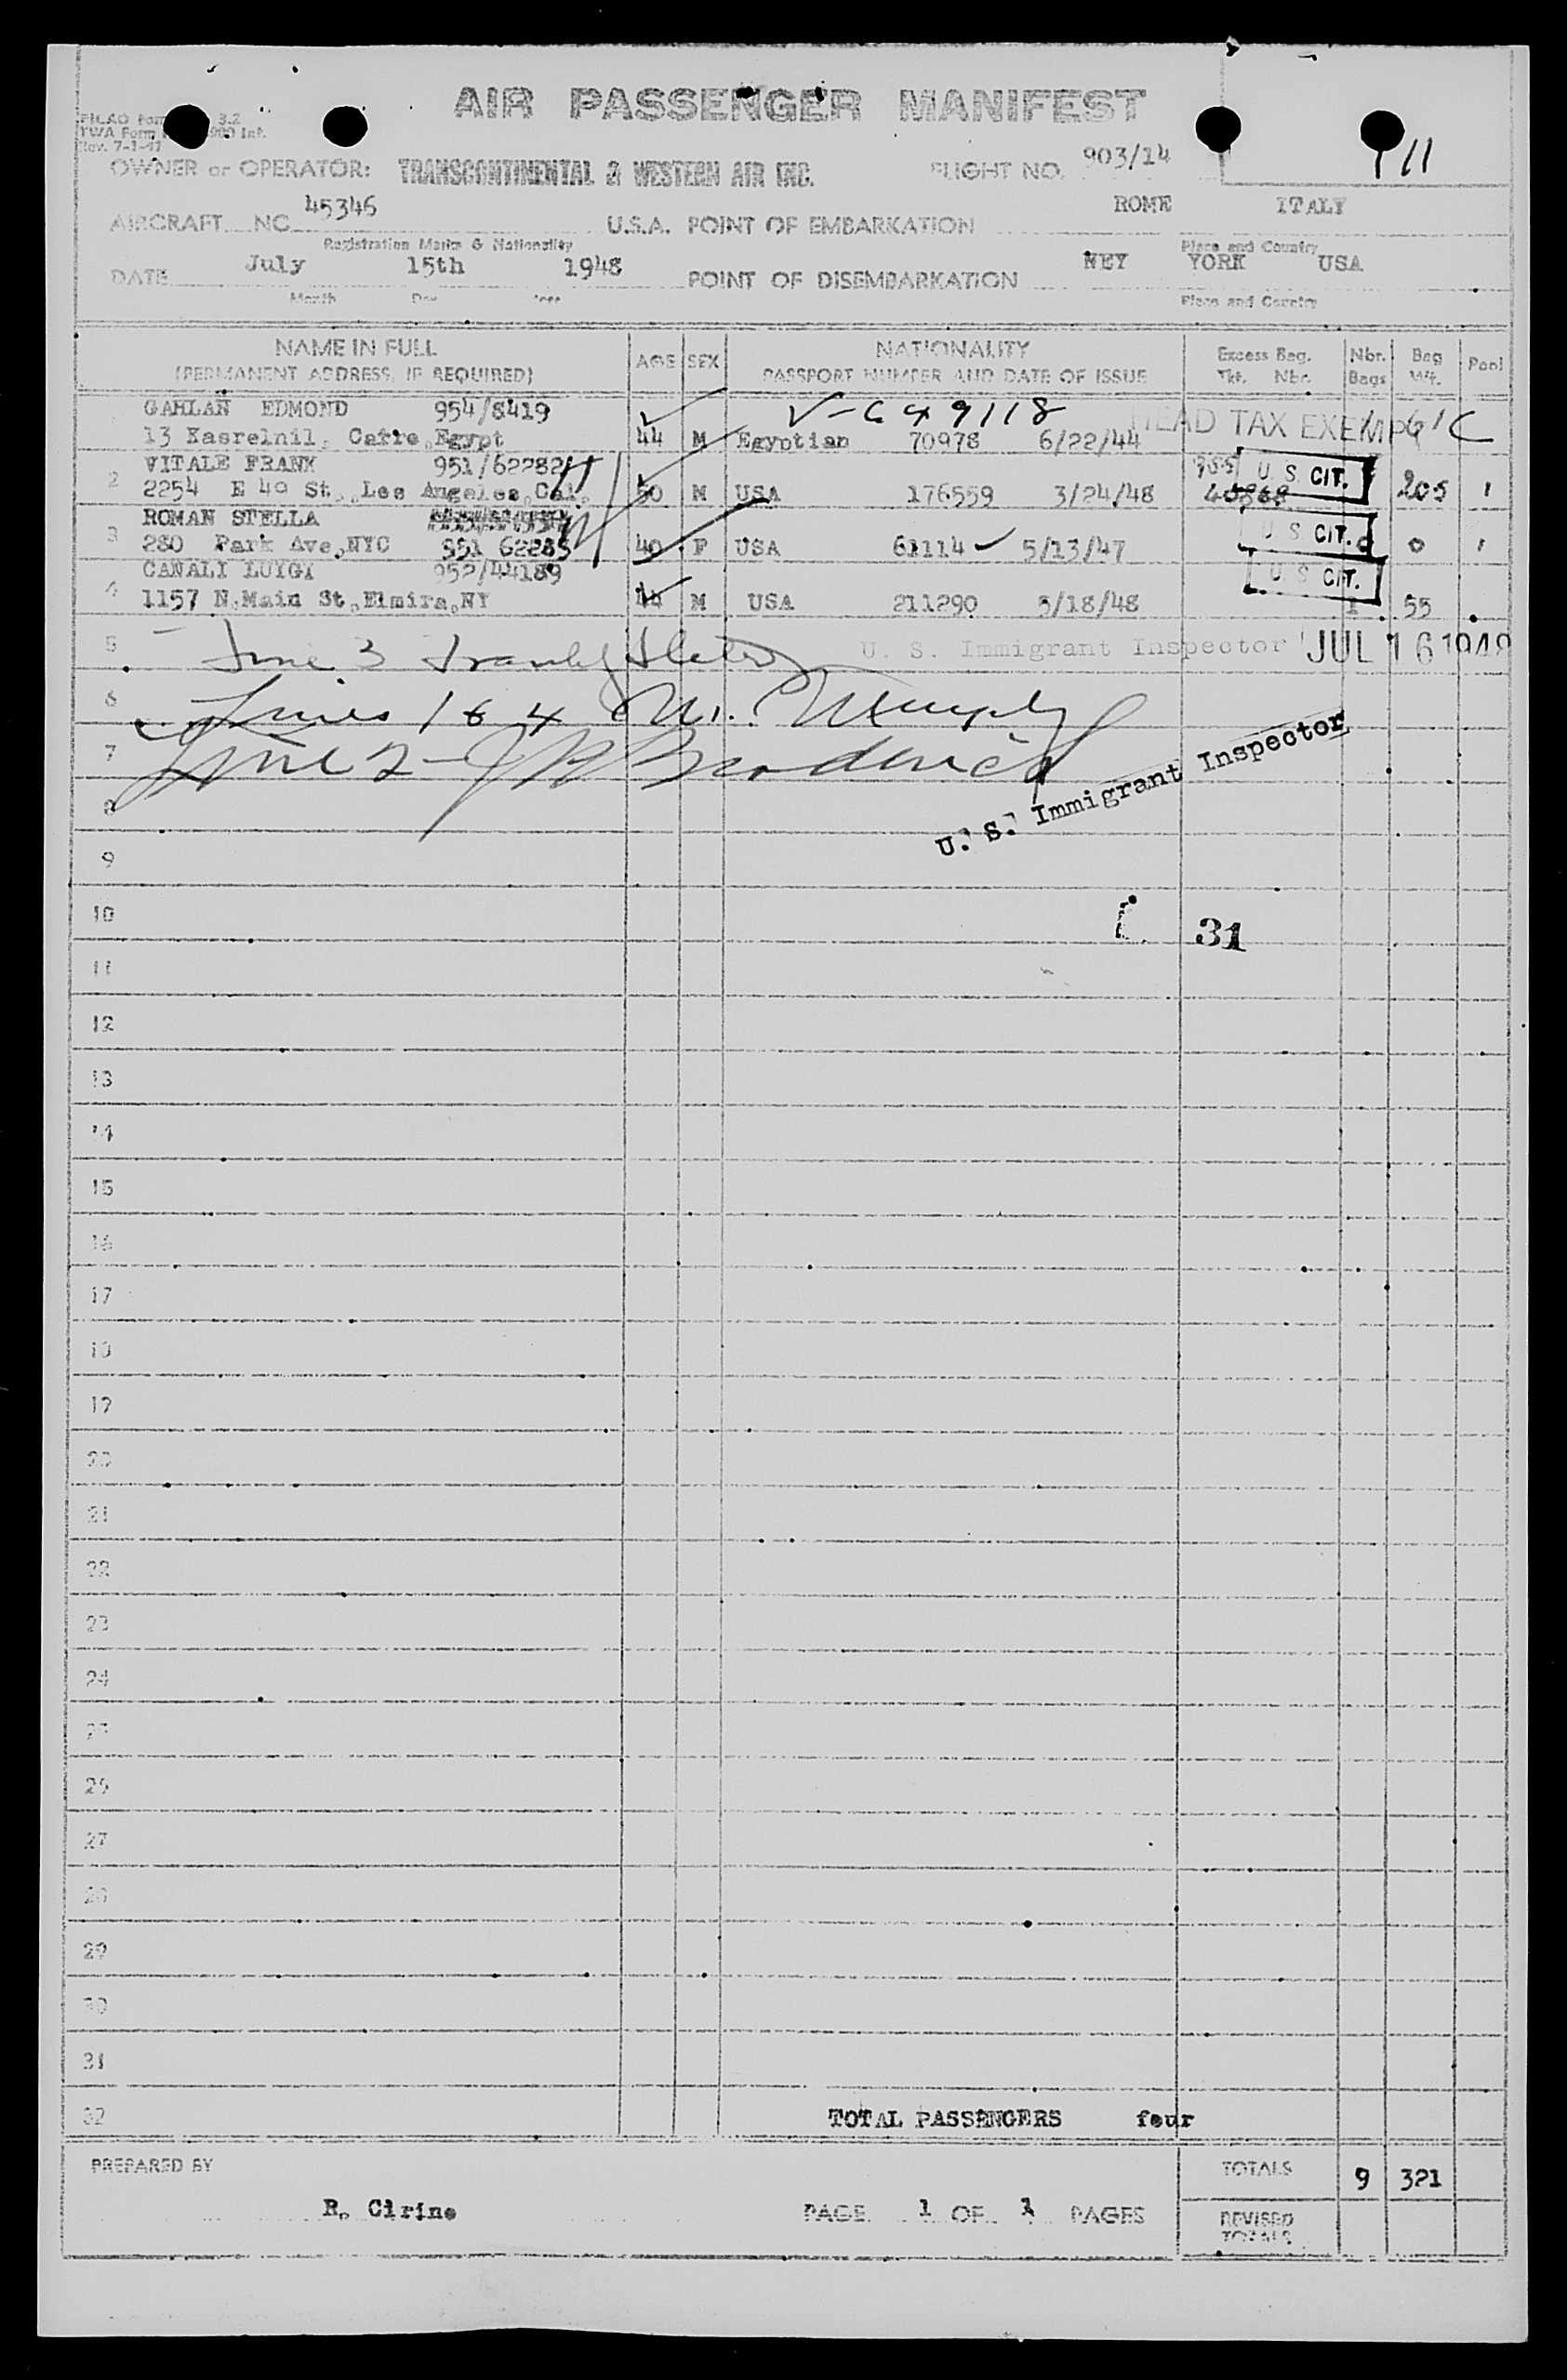 AIR PASSENGER MANIFEST
3.2
TWA Form 900 Int.
Rev. 7-1-47
OWNER or OPERATOR: TRANSCONTINENTAL & WESTERN AIR INC. FLIGHT NO. 903/14
111
AIRCRAFT NO. 45346 U.S.A. POINT OF EMBARKATION ROME ITALY
Registration Marks & Nationality Place and Country
DATE July 15th 1948 POINT OF DISEMBARKATION NEY YORK USA
Month Day Year Place and Country
NAME IN FULL AGE SEX NATIONALITY Excess Bag. Nbr. Bag Pool
(PERMANENT ADDRESS, IF REQUIRED) PASSPORT NUMBER AND DATE OF ISSUE Tkt. Nbr. Bags Wt.
GAHLAN EDMOND 954/8419 HEAD TAX EXEMPT
13 Kasrelnil, Cairo, Egypt 44 M Egyptian 70978 6/22/44
VITALE FRANK 951/62282
2 2254 E 40 St., Los Angeles, Cal. 50 M USA 176559 3/24/48 U S CIT. 205 1
ROMAN STELLA
3 280 Park Ave, NYC 951 62285 40 F USA 61114 5/13/47 U S CIT. 0
CANALI LUIGI 952/44189
4 1157 N. Main St, Elmira, NY M USA 211290 5/18/48 U S CIT. 1 55
5 Line 3 U. S. Immigrant Inspector JUL 16 1948
6 Lines 1 & 4 M. Murphy
7 Line 2 - J B Broderick
U. S. Immigrant Inspector
8
9
10 31
11
12
13
14
15
16
17
18
19
20
21
22
23
24
25
26
27
28
29
30
31
32 TOTAL PASSENGERS four
PREPARED BY TOTALS 9 321
R. Cirino PAGE 1 OF 1 PAGES REVISED
TOTALS